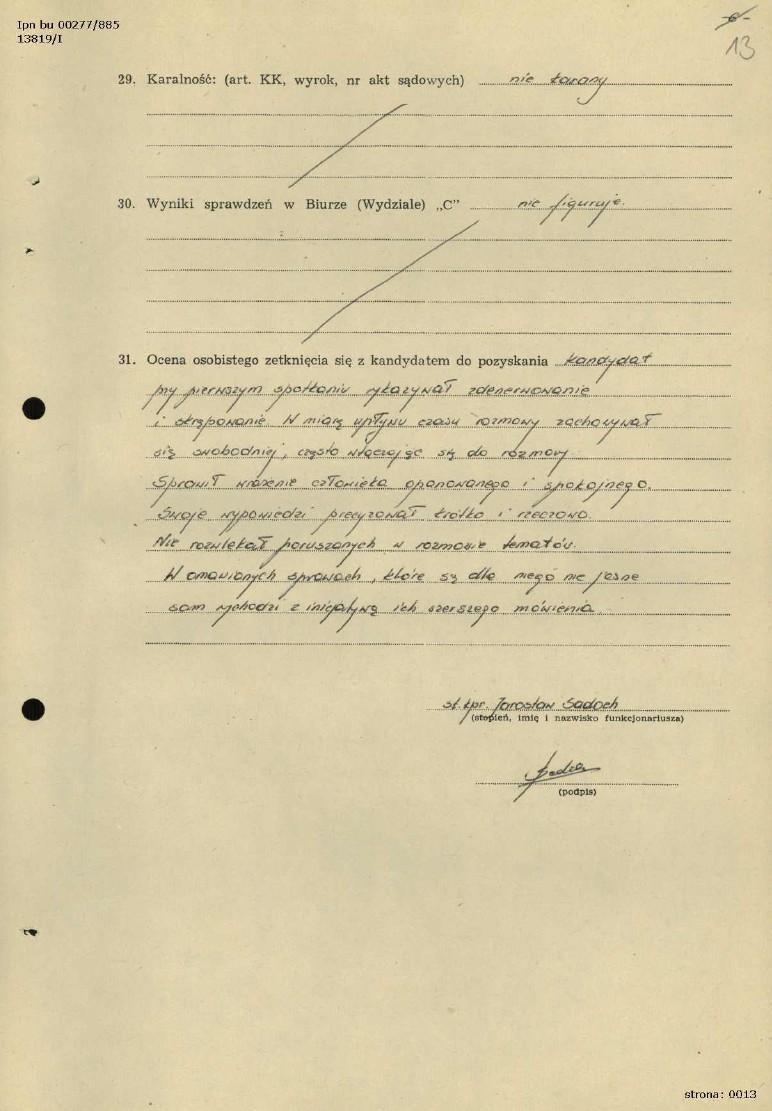 Ipn bu 00277/885
13819/I
6
13
29. Karalność: (art. KK, wyrok, nr akt sądowych) nie karany
30. Wyniki sprawdzeń w Biurze (Wydziale) „C” nie figuruje.
31. Ocena osobistego zetknięcia się z kandydatem do pozyskania kandydat
przy pierwszym spotkaniu wykazywał zdenerwowanie
i skrępowanie. W miarę upływu czasu rozmowy zachowywał
się swobodniej, często włączając się do rozmowy.
Sprawił wrażenie człowieka opanowanego i spokojnego.
Swoje wypowiedzi precyzował krótko i rzeczowo.
Nie rozwlekał poruszanych w rozmowie tematów.
W omawianych sprawach, które są dla niego nie jasne
sam wychodzi z inicjatywą ich szerszego mówienia
st. kpr. Jarosław
(stopień, imię i nazwisko funkcjonariusza)
(podpis)
strona: 0013